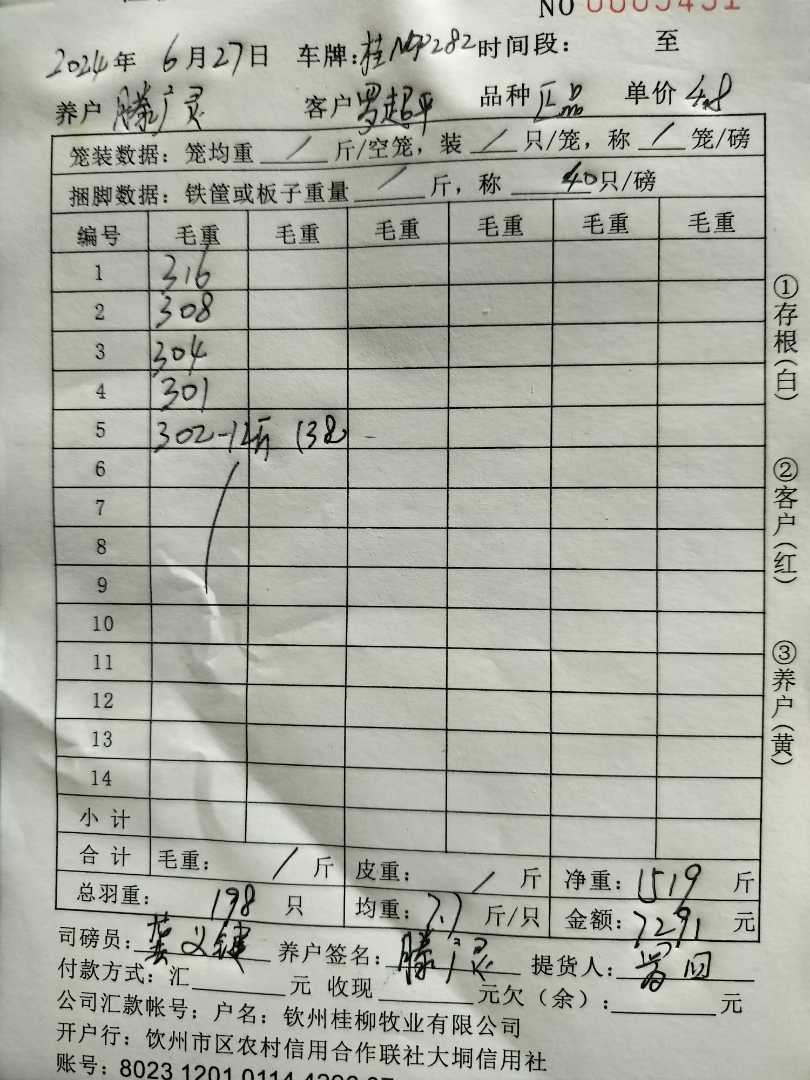 NO 0005451
2024年 6月27日 车牌:桂N 282 时间段: 至
养户 滕广灵 客户 罗超平 品种 正品 单价 4.8
笼装数据: 笼均重 / 斤/空笼, 装 / 只/笼, 称 / 笼/磅
捆脚数据: 铁筐或板子重量 / 斤, 称 40只/磅
编号 毛重 毛重 毛重 毛重 毛重 毛重
1 316
2 308
3 304
4 301
5 302-12斤 (38)
6
7
8
9
10
11
12
13
14
小计
合计 毛重: / 斤 皮重: / 斤 净重: 1519 斤
总羽重: 198 只 均重: 7.7 斤/只 金额: 7291 元
司磅员: 义键 养户签名: 滕广灵 提货人:
付款方式: 汇 元 收现 元欠(余): 元
公司汇款帐号: 户名: 钦州桂柳牧业有限公司
开户行: 钦州市区农村信用合作联社大垌信用社
账号: 8023 1201 0114
①存根(白)
②客户(红)
③养户(黄)